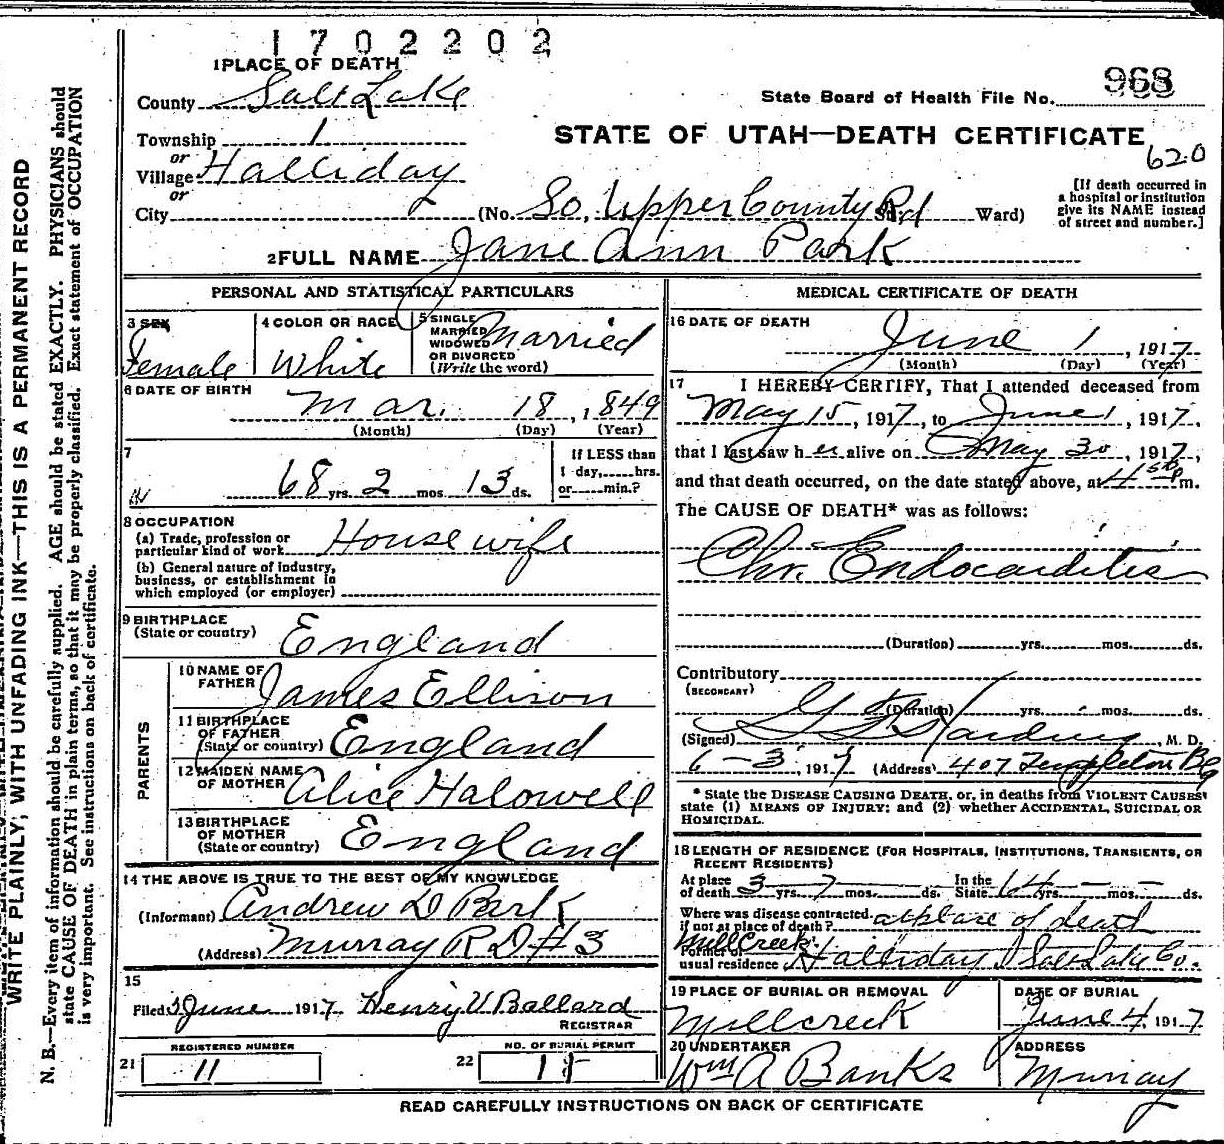 1702202
1 PLACE OF DEATH
968
County Salt Lake
State Board of Health File No.
Township 1
STATE OF UTAH—DEATH CERTIFICATE
620
or
Village Halliday
or
City (No. So. Upper County Rd Ward)
[If death occurred in
a hospital or institution
give its NAME instead
of street and number.]
2 FULL NAME Jane Ann Park
PERSONAL AND STATISTICAL PARTICULARS
3 SEX
Female
4 COLOR OR RACE
White
5 SINGLE
MARRIED
WIDOWED
OR DIVORCED
(Write the word)
Married
6 DATE OF BIRTH
Mar. 18, 1849
(Month) (Day) (Year)
7
68 yrs. 2 mos. 13 ds.
If LESS than
1 day,......hrs.
or......min.?
8 OCCUPATION
(a) Trade, profession or
particular kind of work Housewife
(b) General nature of industry,
business, or establishment in
which employed (or employer)
9 BIRTHPLACE
(State or country) England
PARENTS
10 NAME OF
FATHER James Ellison
11 BIRTHPLACE
OF FATHER
(State or country) England
12 MAIDEN NAME
OF MOTHER Alice Halowell
13 BIRTHPLACE
OF MOTHER
(State or country) England
14 THE ABOVE IS TRUE TO THE BEST OF MY KNOWLEDGE
(Informant) Andrew D Park
(Address) Murray R D #3
15
Filed June 1917 Henry V Ballard
REGISTRAR
21 REGISTERED NUMBER
11
22 NO. OF BURIAL PERMIT
MEDICAL CERTIFICATE OF DEATH
16 DATE OF DEATH
June 1, 1917
(Month) (Day) (Year)
17 I HEREBY CERTIFY, That I attended deceased from
May 15, 1917, to June 1, 1917.
that I last saw her alive on May 30, 1917,
and that death occurred, on the date stated above, at m.
The CAUSE OF DEATH* was as follows:
Chr. Endocarditis
(Duration) yrs. mos. ds.
Contributory
(SECONDARY)
(Duration) yrs. mos. ds.
(Signed) Harding, M. D.
6-3, 1917 (Address) 407 Templeton Blg
* State the DISEASE CAUSING DEATH, or, in deaths from VIOLENT CAUSES
state (1) MEANS OF INJURY; and (2) whether ACCIDENTAL, SUICIDAL OR
HOMICIDAL.
18 LENGTH OF RESIDENCE (FOR HOSPITALS, INSTITUTIONS, TRANSIENTS, OR
RECENT RESIDENTS)
At place
of death 3 yrs. 7 mos. ds. In the
State 64 yrs. mos. ds.
Where was disease contracted
if not at place of death? at place of death
Mill Creek
Former or
usual residence Halliday Salt Lake Co.
19 PLACE OF BURIAL OR REMOVAL
Millcreek
DATE OF BURIAL
June 4, 1917
20 UNDERTAKER
Wm A Banks
ADDRESS
Murray
READ CAREFULLY INSTRUCTIONS ON BACK OF CERTIFICATE
WRITE PLAINLY, WITH UNFADING INK—THIS IS A PERMANENT RECORD
N. B.—Every item of information should be carefully supplied. AGE should be stated EXACTLY. PHYSICIANS should
state CAUSE OF DEATH in plain terms, so that it may be properly classified. Exact statement of OCCUPATION
is very important. See instructions on back of certificate.